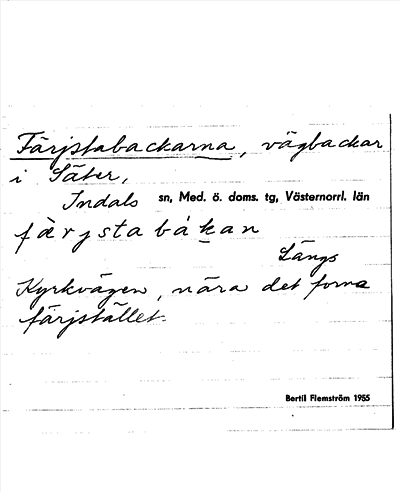 Färjstabackarna, vägbackar
i Säter,
Indals sn, Med. ö. doms. tg, Västernorrl. län
fæ̀rjstabákan
Längs
Kyrkvägen, nära det forna
färjstället.
Bertil Flemström 1955